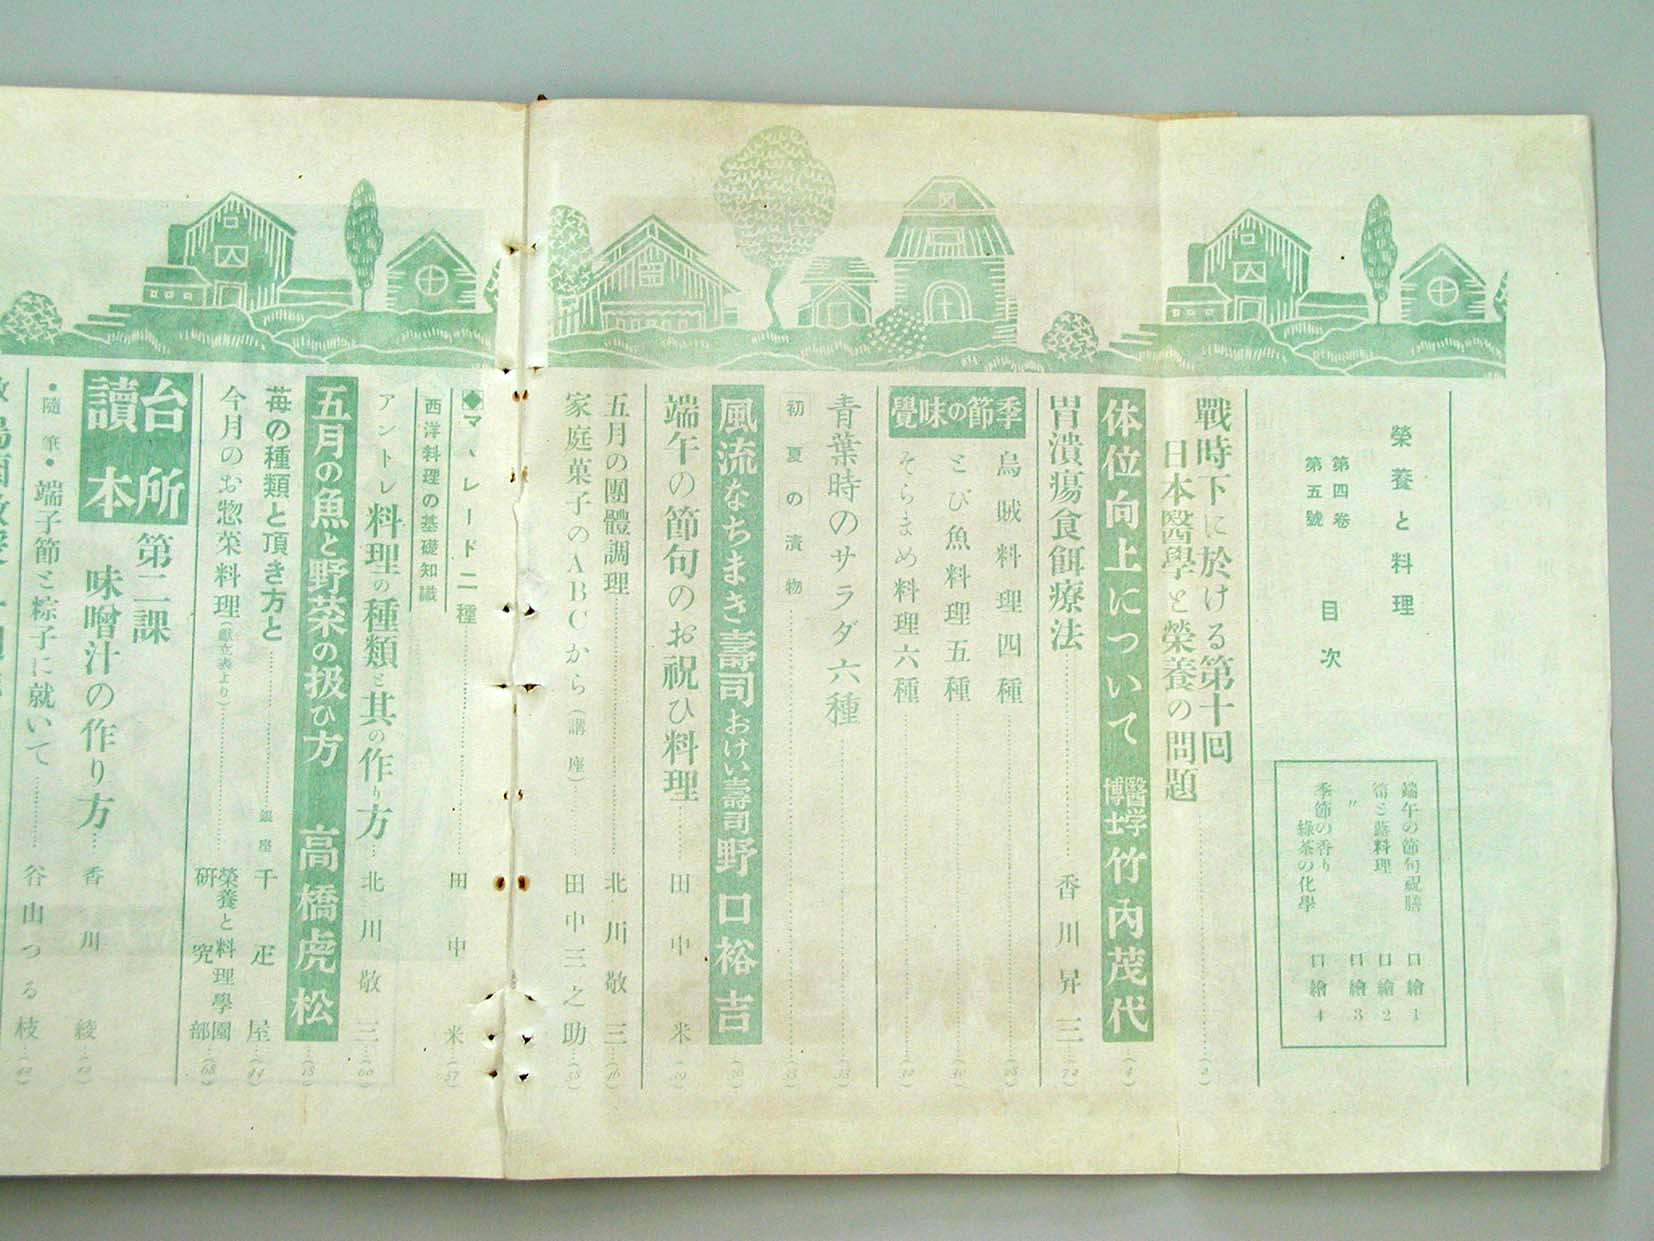 榮養と料理
第四卷
第五號
目次
端午の節句祝膳 口繪 1
筍と蕗料理 口繪 2
〃 口繪 3
季節の香り
綠茶の化學 口繪 4
戰時下に於ける第十回
日本醫學と榮養の問題…(2)
体位向上について 醫学博士 竹內茂代…(4)
胃潰瘍食餌療法…香川昇三…(72)
季節の味覺
烏賊料理四種…(28)
とび魚料理五種…(30)
そらまめ料理六種…(32)
青葉時のサラダ六種…
初夏の漬物…
風流なちまき壽司おけい壽司 野口裕吉
端午の節句のお祝ひ料理 田中米…
五月の團體調理…北川敬三…
家庭菓子のABCから(講座)…田中三之助…
◆マーマレード二種…田中米…(57)
西洋料理の基礎知識
アントレ料理の種類と其の作り方…北川敬三…(60)
五月の魚と野菜の扱ひ方 高橋虎松…
苺の種類と頂き方と…銀座 千疋屋…(44)
今月のお惣菜料理(獻立表より)…榮養と料理學園研究部…(68)
台所讀本 第二課
味噌汁の作り方…香川綾…
•隨筆•端子節と粽子に就いて…谷山つる枝…